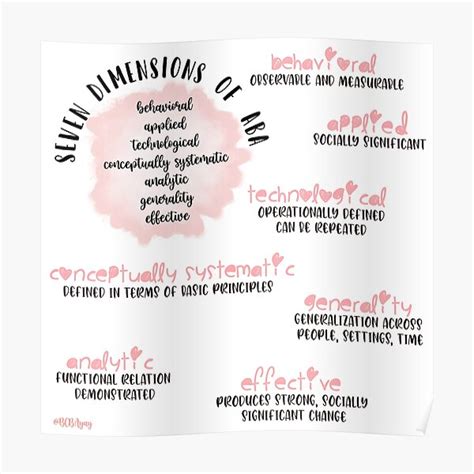 SEVEN DIMENSIONS OF ABA
behavioral
applied
technological
conceptually systematic
analytic
generality
effective
behavioral
OBSERVABLE AND MEASURABLE
applied
SOCIALLY SIGNIFICANT
technological
OPERATIONALLY DEFINED
CAN BE REPEATED
conceptually systematic
DEFINED IN TERMS OF BASIC PRINCIPLES
generality
GENERALIZATION ACROSS
PEOPLE, SETTINGS, TIME
analytic
FUNCTIONAL RELATION
DEMONSTRATED
effective
PRODUCES STRONG, SOCIALLY
SIGNIFICANT CHANGE